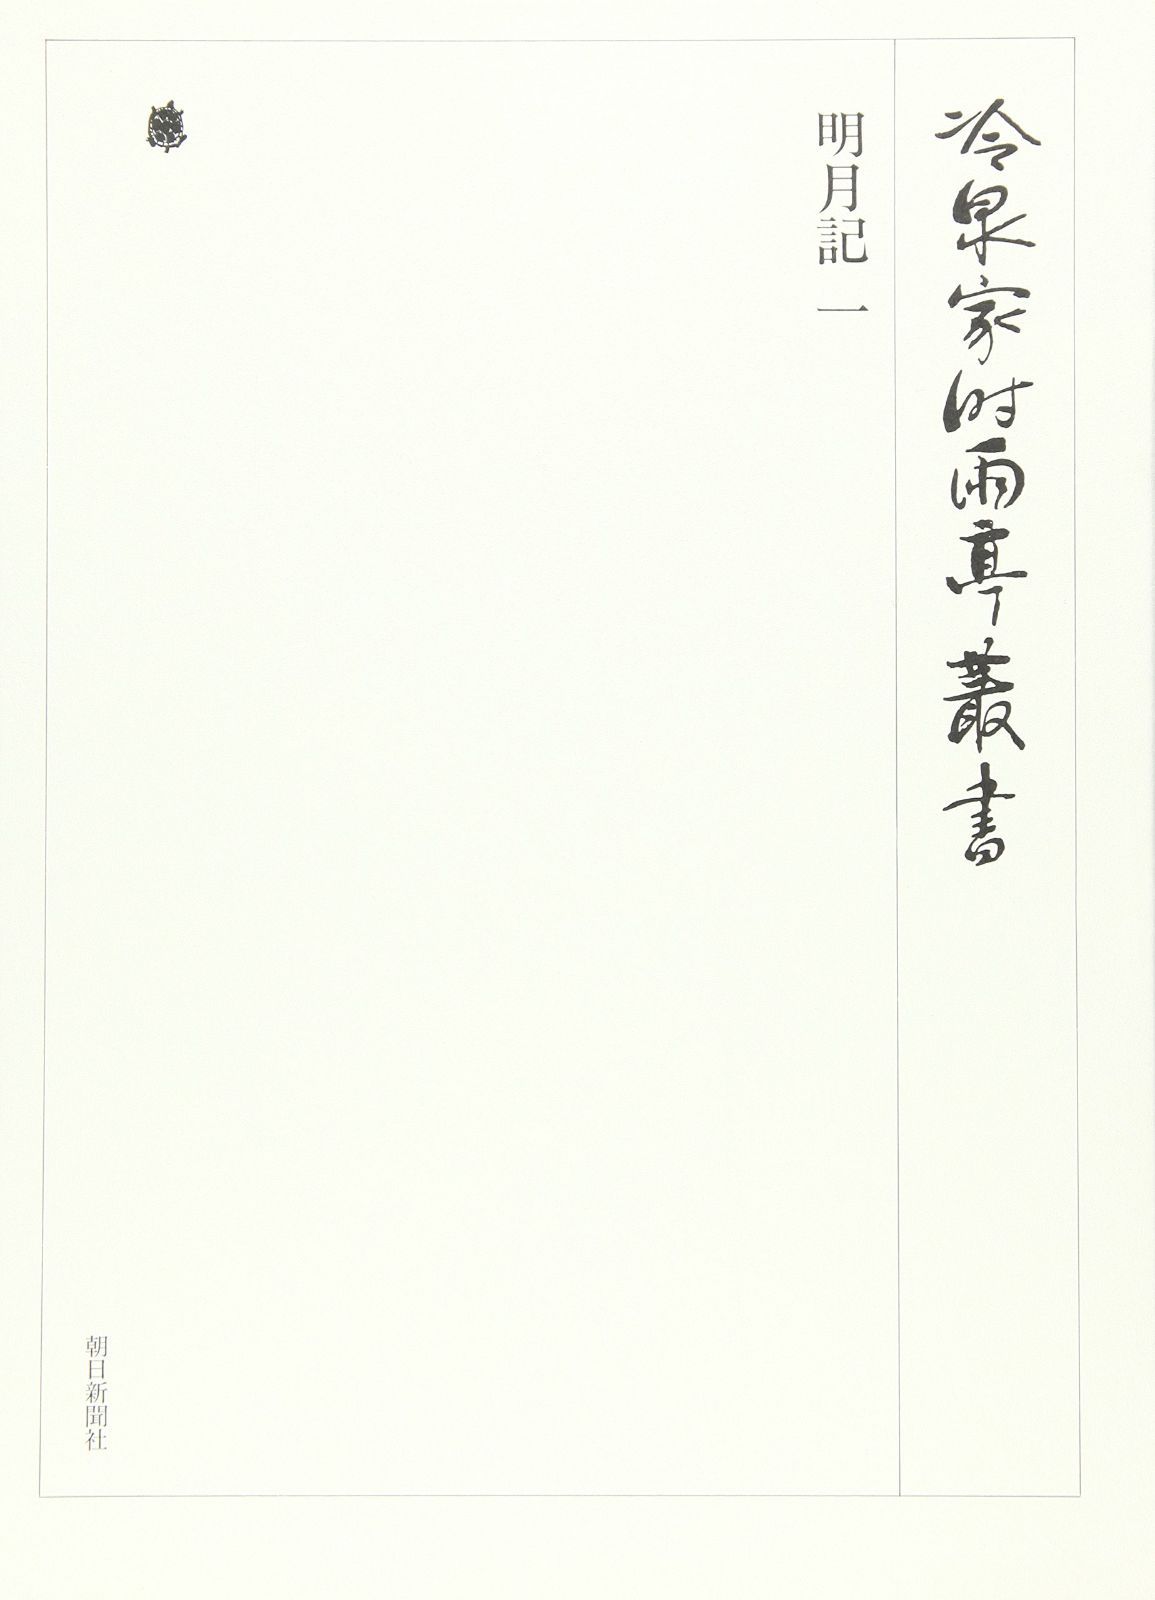 冷泉家时雨亭叢書
明月記 一
朝日新聞社